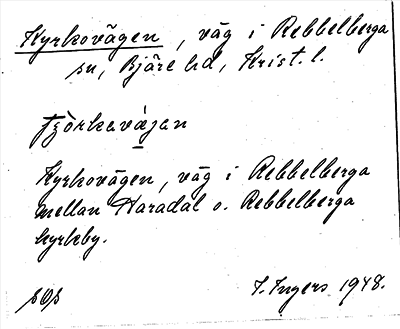 Kyrkovägen, väg i Rebbelberga
sn, Bjäre hd, Krist. l.
Kyrkovägen, väg i Rebbelberga
mellan Varadal o. Rebbelberga
kyrkby.
I. Ingers 1948.